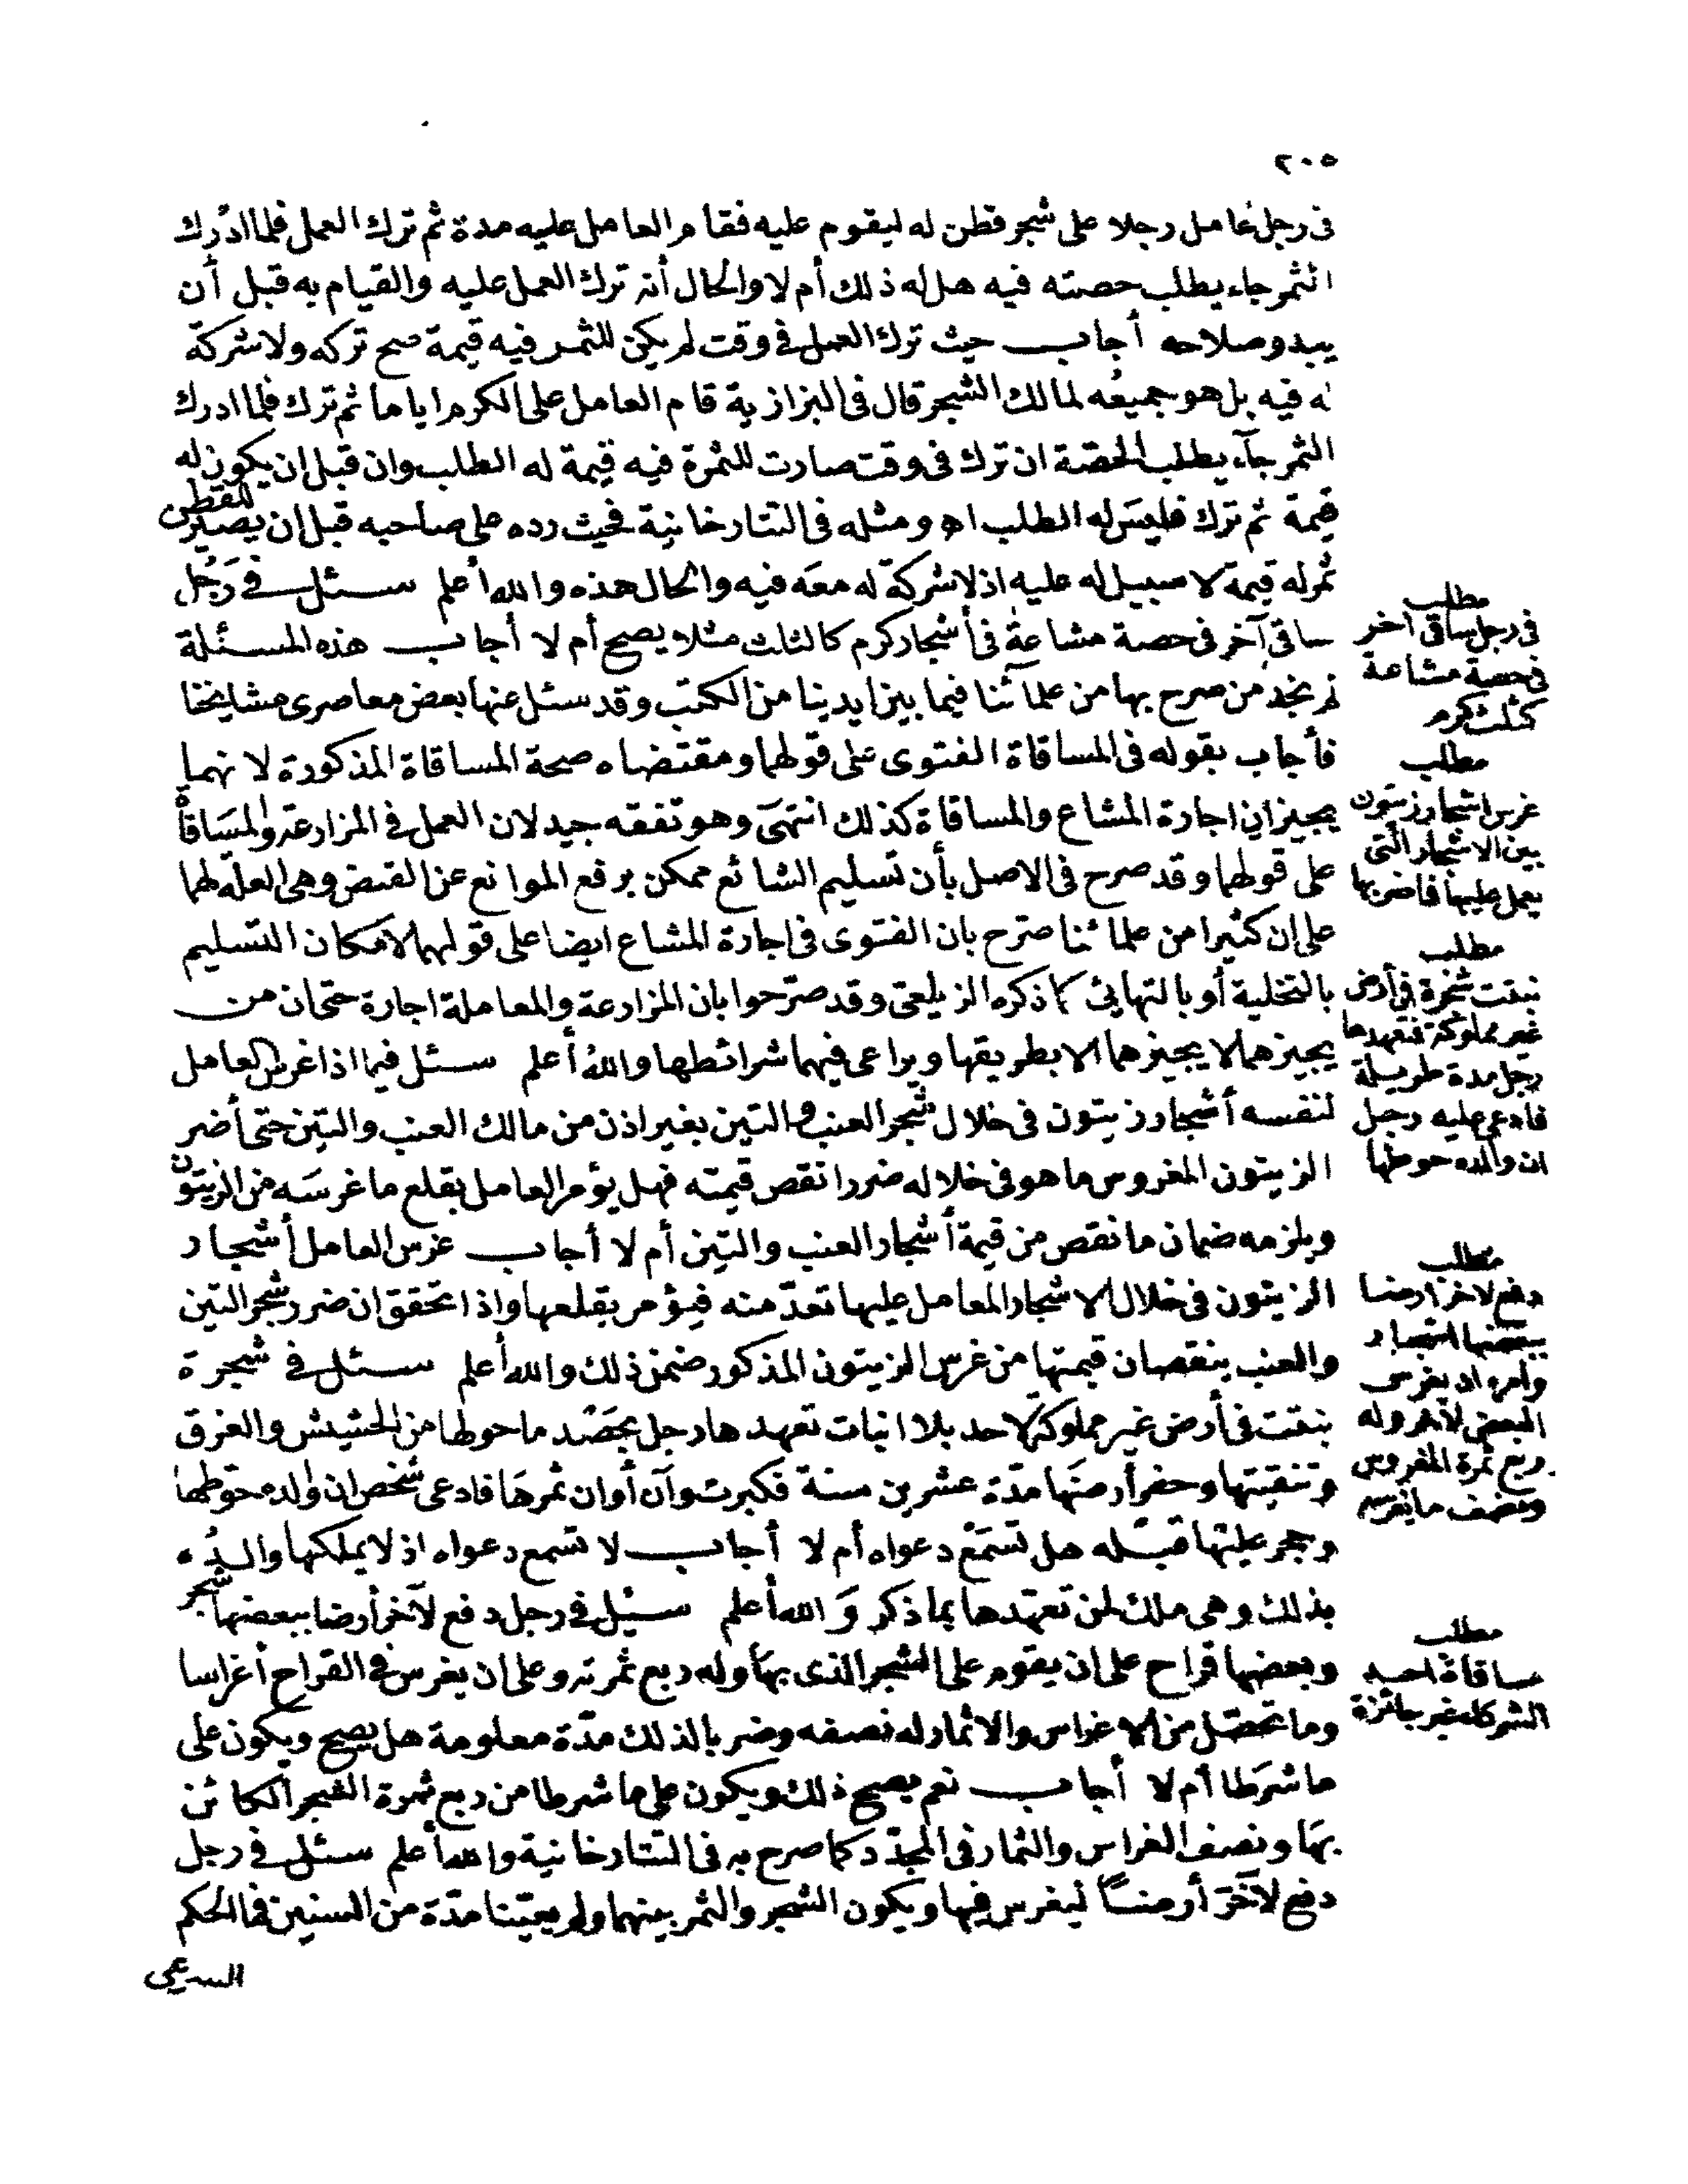 ٢٠٥
فى رجل عامل رجلا على شجر قطن له ليقوم عليه فقام العامل عليه مدة ثم ترك العمل فلما ادرك
الثمر جاء يطلب حصته فيه هل له ذلك أم لا والحال أنه ترك العمل عليه والقيام به قبل أن
يبدو صلاحه أجاب حيث ترك العمل فى وقت لم يكن للثمر فيه قيمة صح تركه ولا شركة
له فيه بل هو جميعه لمالك الشجر قال فى البزازية قام العامل على الكرم اياما ثم ترك فلما ادرك
الثمر جآء يطلب الحصة ان ترك فى وقت صارت للثمرة فيه قيمة له الطلب وان قبل ان يكون له
قيمة ثم ترك فليس له الطلب اه ومثله فى التتارخانية فحيث رده على صاحبه قبل ان يصير للقطن
ثمر له قيمة لا سبيل له عليه اذ لا شركة له معه فيه والحال هذه والله أعلم سئل فى رجل
ساقى آخر فى حصة مشاعة فى أشجار كرم كالثلث مثلا يصح أم لا أجاب هذه المسئلة
لم نجد من صرح بها من علمائنا فيما بين ايدينا من الكتب وقد سئل عنها بعض معاصرى مشايخنا
فأجاب بقوله فى المساقاة الفتوى على قولهما ومقتضاه صحة المساقاة المذكورة لانهما
يجيزان اجارة المشاع والمساقاة كذلك انتهى وهو تفقه جيد لان العمل فى المزارعة والمساقاة
على قولهما وقد صرح فى الاصل بأن تسليم الشائع ممكن برفع الموانع عن القبض وهى العلة لهما
على ان كثيرا من علمائنا صرح بان الفتوى فى اجارة المشاع ايضا على قولهما لامكان التسليم
بالتخلية أو بالتهايئ كما ذكره الزيلعى وقد صرحوا بان المزارعة والمعاملة اجارة حتى ان من
يجيزهما لا يجيزهما الا بطريقها ويراعى فيهما شرائطها والله أعلم سئل فيما اذا غرس العامل
لنفسه أشجار زيتون فى خلال شجر العنب والتين بغير اذن من مالك العنب والتين حتى أضر
الزيتون المغروس ما هو فى خلاله ضررا نقص قيمته فهل يؤمر العامل بقلع ما غرسه من الزيتون
ويلزمه ضمان ما نقص من قيمة أشجار العنب والتين أم لا أجاب غرس العامل أشجار
الزيتون فى خلال الاشجار المعامل عليها تعد منه فيؤمر بقلعها واذا تحقق ان ضرر شجر التين
والعنب بنقصان قيمتها من غرس الزيتون المذكور ضمن ذلك والله أعلم سئل فى شجرة
نبقت فى أرض غير مملوكة لاحد بلا انبات تعهدها رجل بحصد ما حولها من الحشيش والعزق
وتنقيتها وحفر أرضها مدة عشرين سنة فكبرت وآن أوان ثمرها فادعى شخص ان والده حوطها
وحجر عليها قبله هل تسمع دعواه أم لا أجاب لا تسمع دعواه اذ لا يملكها والده
بذلك وهى ملك لمن تعهدها بما ذكر والله أعلم سئل فى رجل دفع لآخر أرضا ببعضها شجر
وبعضها قراح على ان يقوم على الشجر الذى بها وله ربع ثمرته وعلى ان يغرس فى القراح أغراسا
وما تحصل من الاغراس والاثمار له نصفه وضربا لذلك مدة معلومة هل يصح ويكون على
ما شرطا أم لا أجاب نعم يصح ذلك ويكون على ما شرطا من ربع ثمرة الشجر الكائن
بها ونصف الغراس والثمار فى المجدد كما صرح به فى التتارخانية والله أعلم سئل فى رجل
دفع لآخر أرضا ليغرس فيها ويكون الشجر والثمر بينهما ولم يعينا مدة من السنين فما الحكم
مطلب
فى رجل ساقى آخر
فى حصة مشاعة
كثلث كرم
مطلب
غرس اشجار زيتون
بين الاشجار التى
يعمل عليها فاضر بها
مطلب
نبقت شجرة فى أرض
غير مملوكة فتعهدها
رجل مدة طويلة
فادعى عليه رجل
ان والده حوطها
مطلب
دفع لاخر ارضا
ببعضها اشجار
وامره ان يغرس
البعض الآخر وله
ربع ثمرة المغروس
ونصف ما يغرسه
مطلب
مساقاة احد
الشركاء غير جائزة